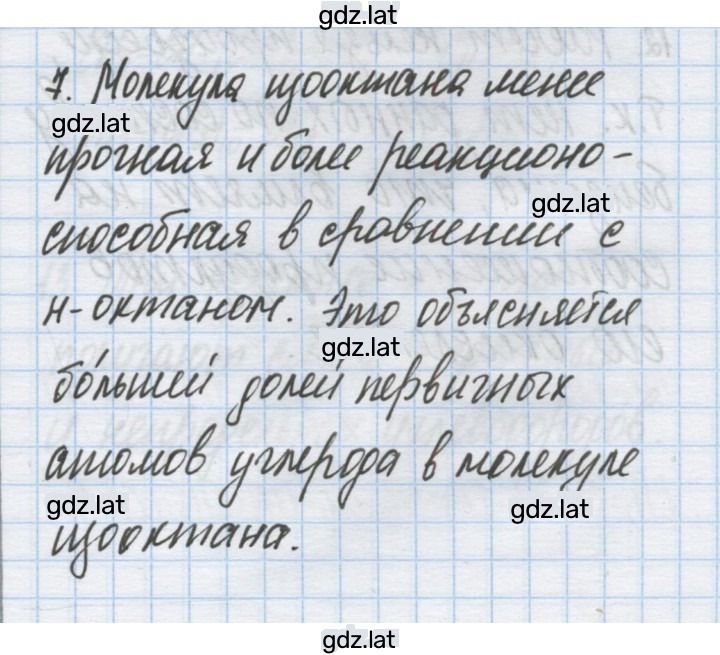 gdz.lat
7. Молекула изооктана менее
gdz.lat
прочная и более реакционо-
gdz.lat
способная в сравнении с
н-октаном. Это объясняется
gdz.lat
бо́льшей долей первичных
атомов углерода в молекуле
gdz.lat
gdz.lat
изооктана.
gdz.lat